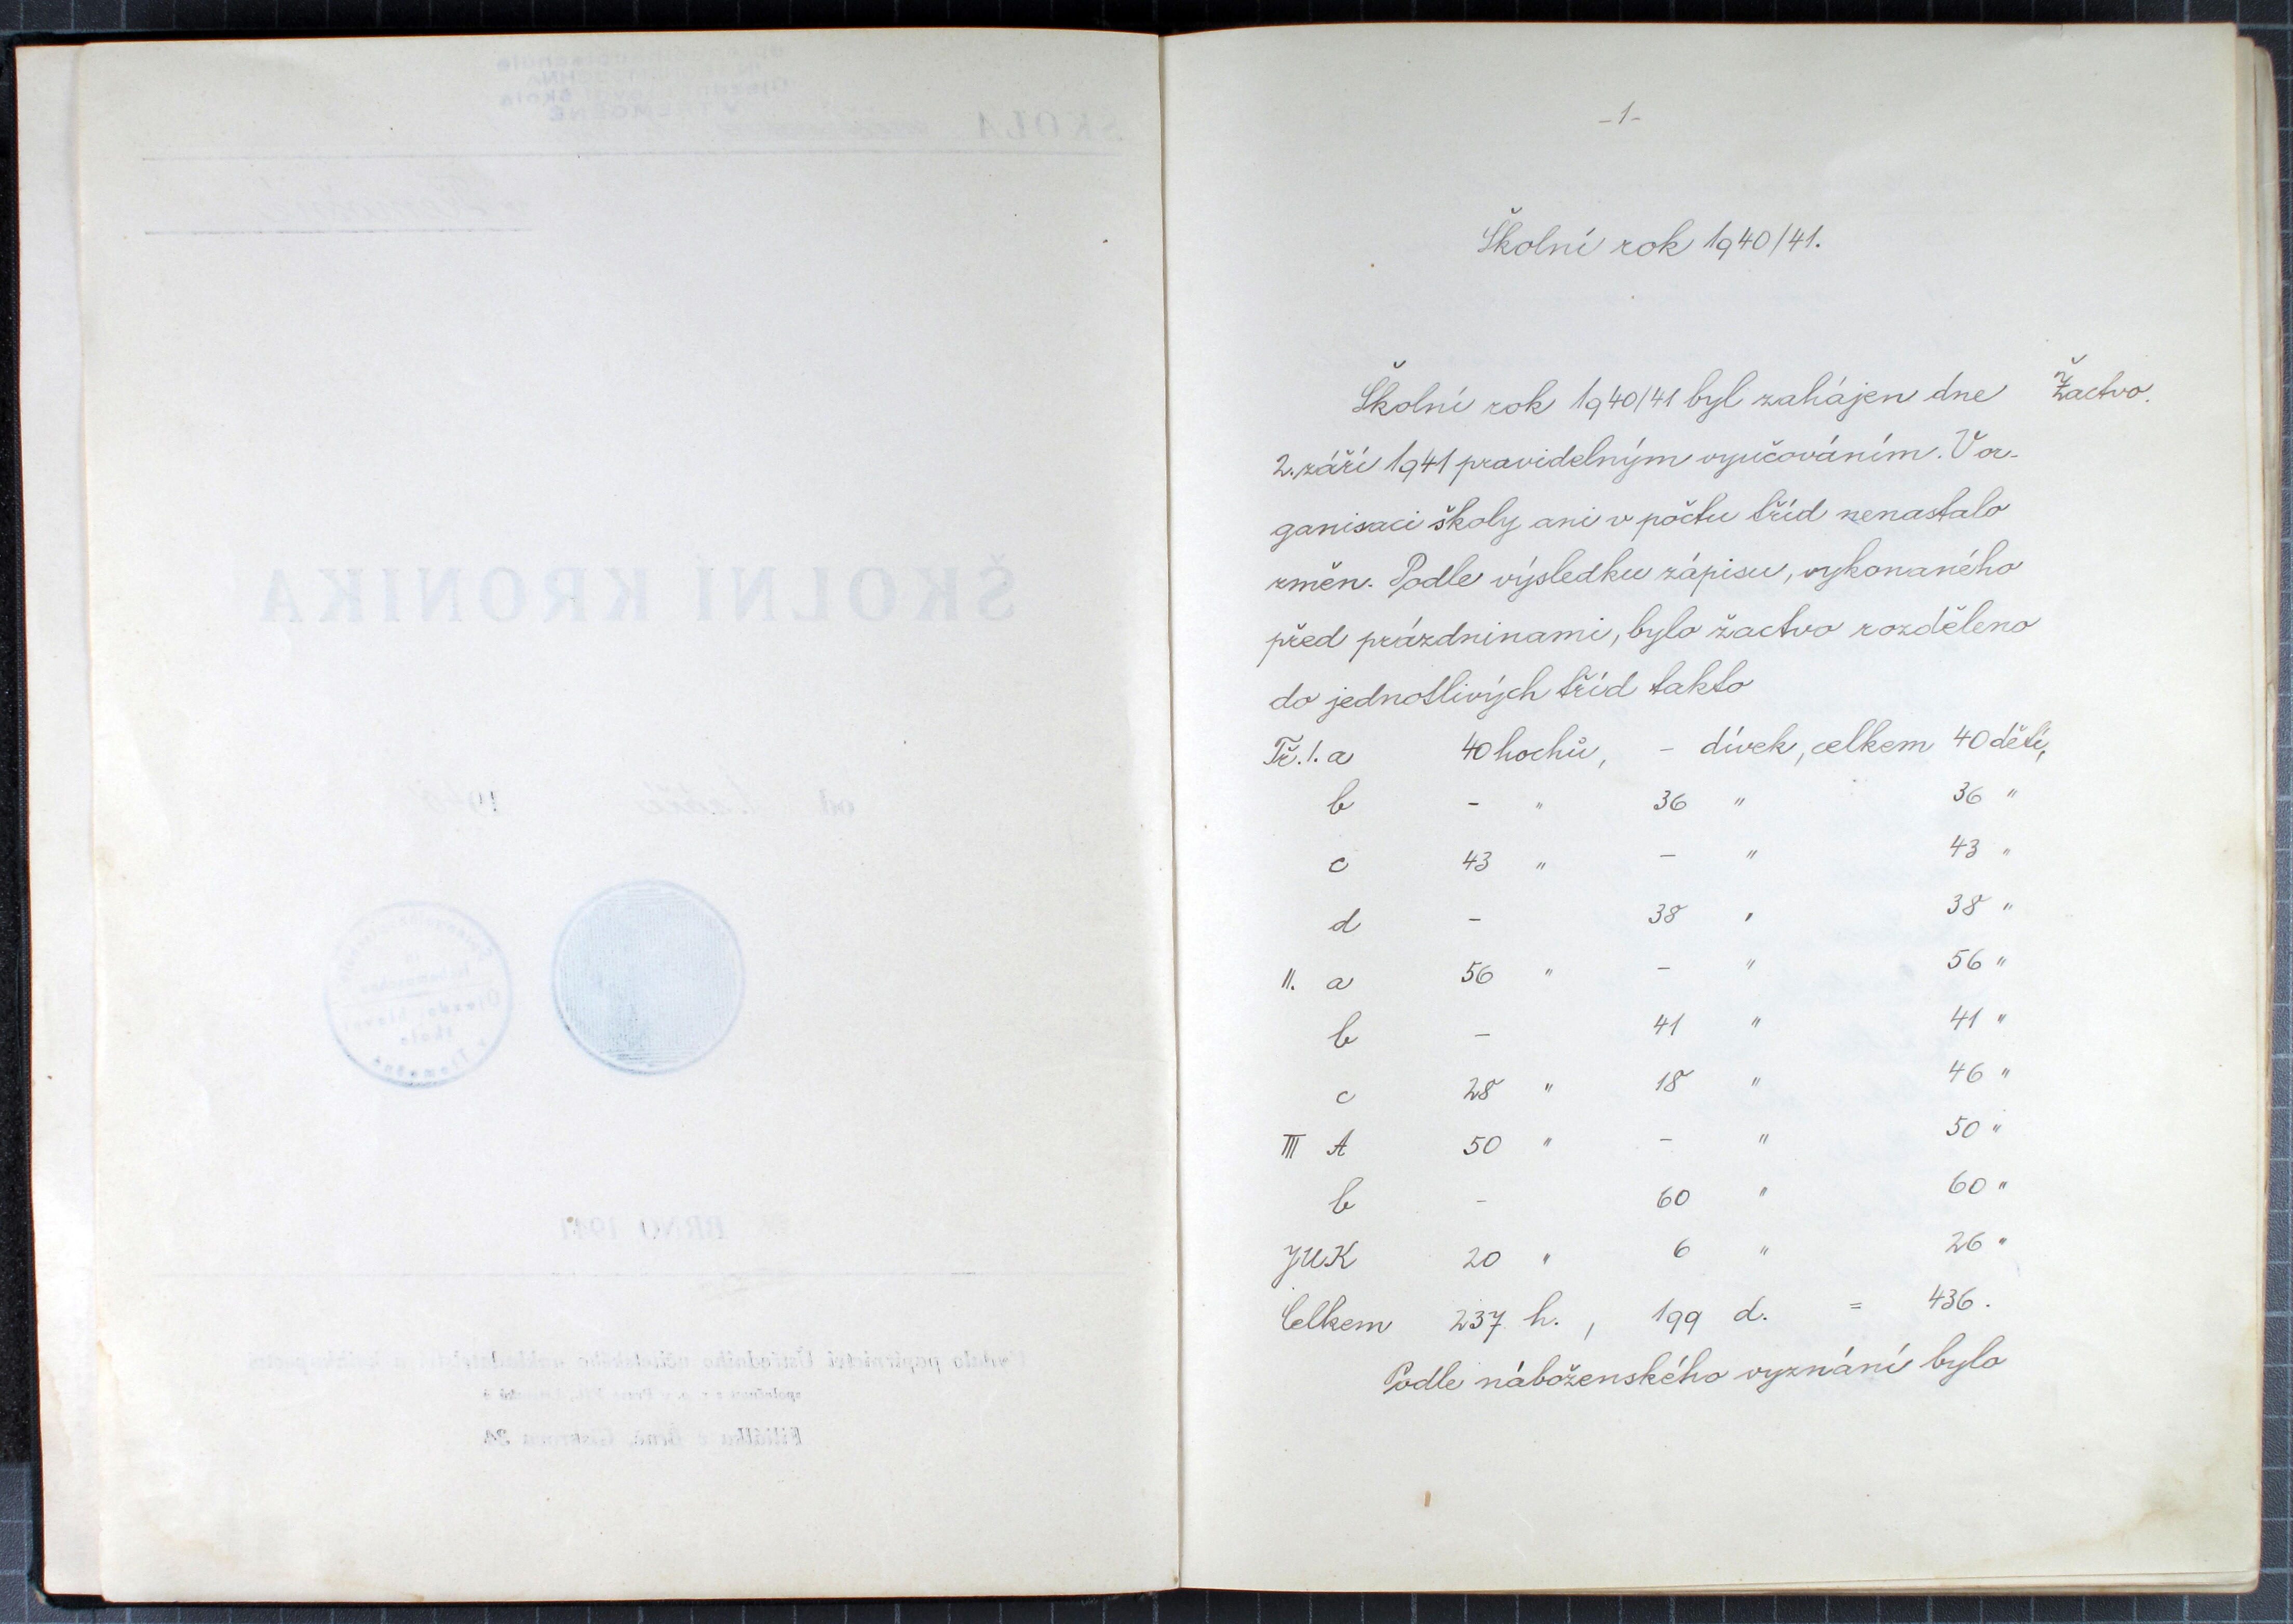 -1-
Školní rok 1940/41.
Školní rok 1940/41 byl zahájen dne
Žactvo.
2. září 1941 pravidelným vyučováním. V or-
ganisaci školy ani v počtu tříd nenastalo
změn. Podle výsledku zápisu, vykonaného
před prázdninami, bylo žactvo rozděleno
do jednotlivých tříd takto
Tř. I. a 40 hochů, - dívek, celkem 40 dětí,
b - " 36 " 36 "
c 43 " - " 43 "
d - 38 " 38 "
II. a 56 " - " 56 "
b - 41 " 41 "
c 28 " 18 " 46 "
III A 50 " - " 50 "
b - 60 " 60 "
JUK 20 " 6 " 26 "
Celkem 237 h. , 199 d. = 436.
Podle náboženského vyznání bylo
ŠKOLA
ŠKOLNÍ KRONIKA
od
BRNO 1941